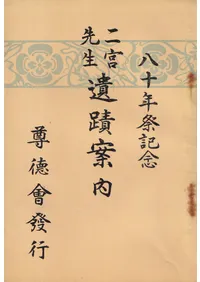 八十年祭記念
二宮先生遺蹟案内
尊徳會發行